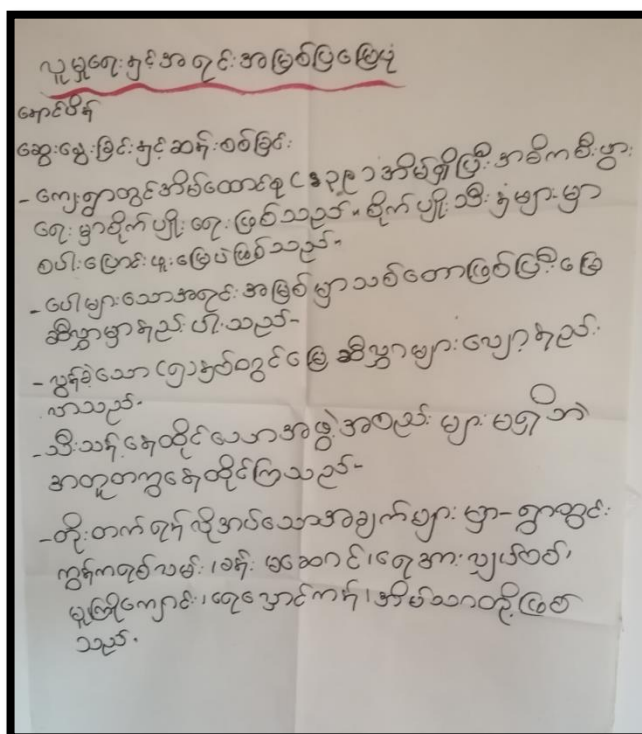 လူမှုရေးနှင့်အရင်းအမြစ်ပြမြေပုံ
နောင်ပိန်
ဆွေးနွေးခြင်းနှင့်ဆန်းစစ်ခြင်း
- ကျေးရွာတွင်အိမ်ထောင်စု (၁၃၉) အိမ်ရှိပြီး အဓိကစီးပွား
ရေးမှာစိုက်ပျိုးရေးဖြစ်သည်။ စိုက်ပျိုးသီးနှံများမှာ
စပါး၊ ပြောင်းဖူး၊ မြေပဲဖြစ်သည်။
- ပေါများသောအရင်းအမြစ်မှာသစ်တောဖြစ်ပြီး မြေ
ဆီလွှာမှာနည်းပါးသည်။
- လွန်ခဲ့သော (၅) နှစ်တွင်မြေဆီလွှာများလျော့နည်း
လာသည်။
- သီးသန့်နေထိုင်သောအဖွဲ့အစည်းများမရှိဘဲ
အတူတကွနေထိုင်ကြသည်။
- တိုးတက်ရန်လိုအပ်သောအချက်များမှာ - ရွာတွင်း
ကွန်ကရစ်လမ်း၊ ခန်းမဆောင်၊ ရေအားလျှပ်စစ်၊
မူကြိုကျောင်း၊ ရေလှောင်ကန်၊ အိမ်သာတို့ဖြစ်
သည်။